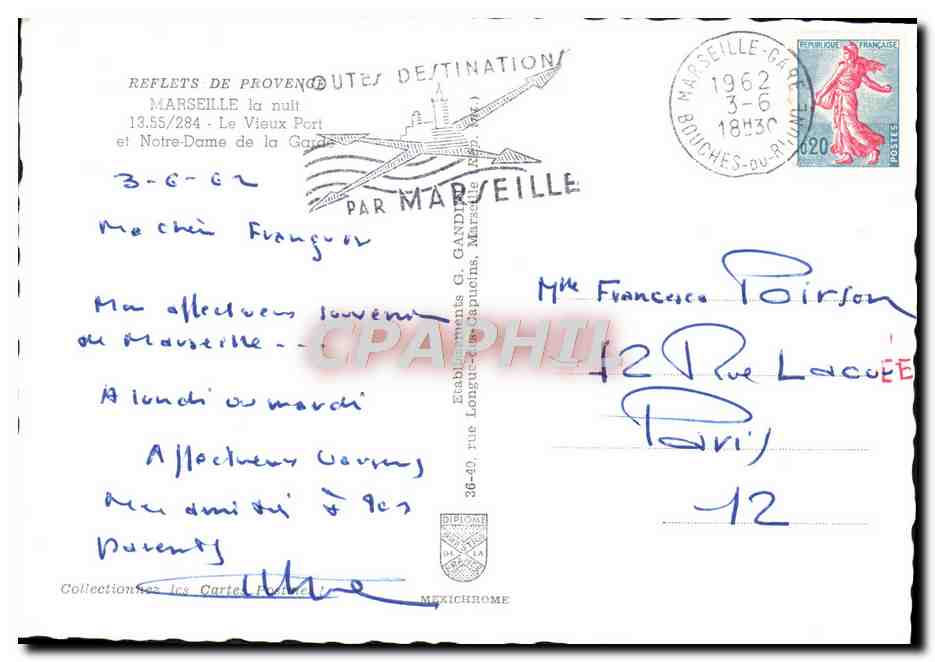 REFLETS DE PROVENCE
MARSEILLE la nuit
13.55/284 - Le Vieux Port
et Notre-Dame de la Garde
TOUTES DESTINATIONS
PAR MARSEILLE
MARSEILLE-GARE
1962
3-6
18H30
BOUCHES-DU-RHONE
REPUBLIQUE FRANÇAISE
0,20
POSTES
3-6-62
Ma chère
Mon affectueux souvenir
de Marseille ---
A lundi ou mardi
Affectueux
amitié à tes
parents
Collectionnez les Cartes Postales
Etablissements G. GANDINI
36-40, rue Longue-des-Capucins, Marseille
DIPLOME
DE LA
MEXICHROME
CPAPHIL
Mlle Francesca Poirson
12 Rue Lacuée
ÉE
Paris
12